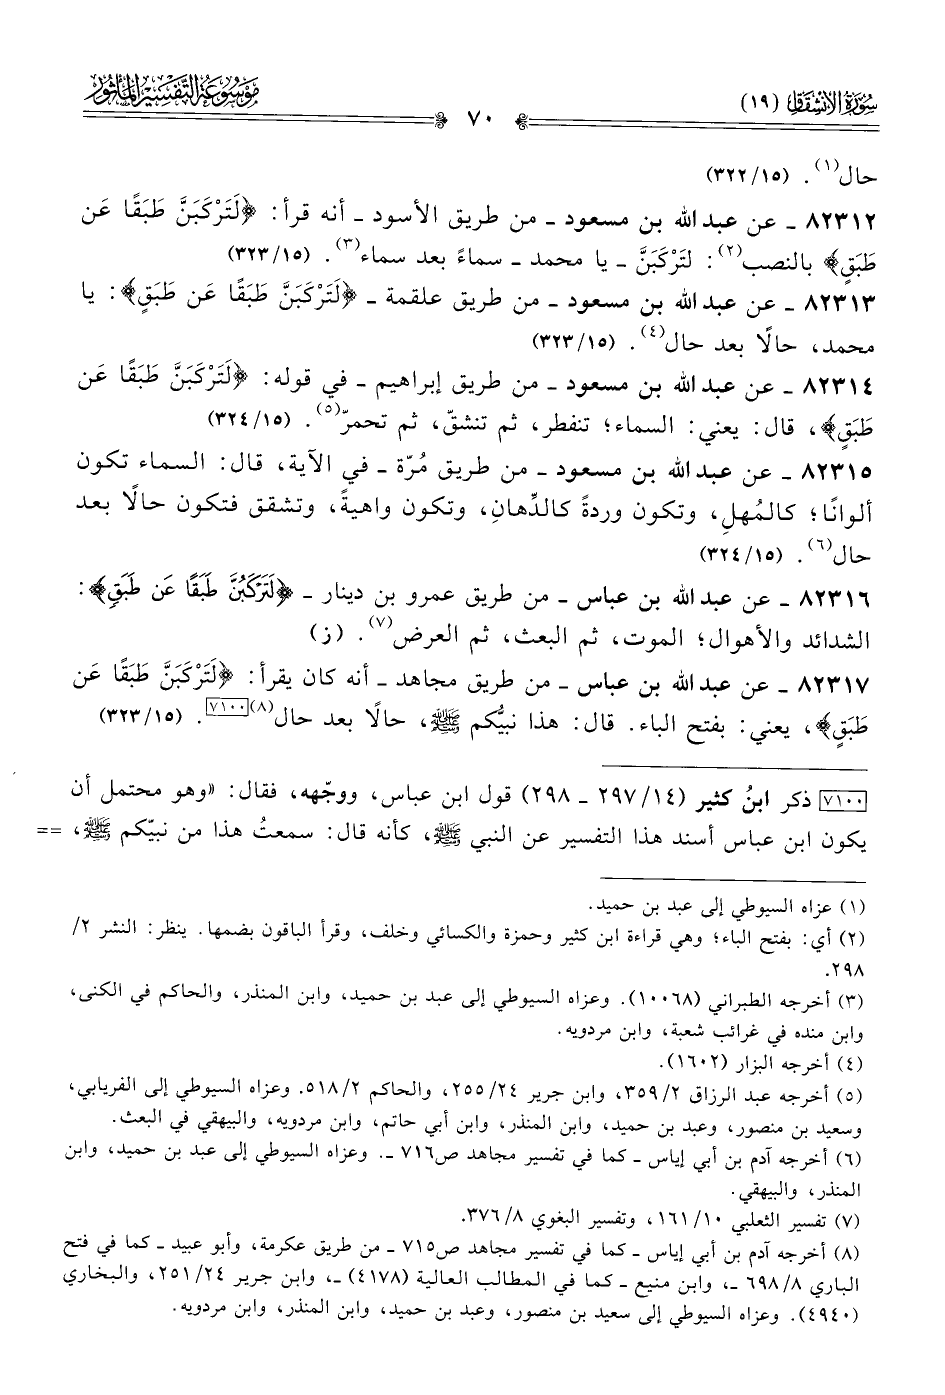 سُورَةُ الاِنْشِقَاقِ (١٩)
٧٠
مَوْسُوعَةُ التَّفْسِيرِ المَأْثُورِ
حال(١). (١٥/٣٢٢)
٨٢٣١٢ ـ عن عبد الله بن مسعود ـ من طريق الأسود ـ أنه قرأ: ﴿لَتَرْكَبَنَّ طَبَقًا عَن
طَبَقٍ﴾ بالنصب(٢): لتَرْكَبَنَّ ـ يا محمد ـ سماءً بعد سماء(٣). (١٥/٣٢٣)
٨٢٣١٣ ـ عن عبد الله بن مسعود ـ من طريق علقمة ـ ﴿لَتَرْكَبَنَّ طَبَقًا عَن طَبَقٍ﴾: يا
محمد، حالًا بعد حال(٤). (١٥/٣٢٣)
٨٢٣١٤ ـ عن عبد الله بن مسعود ـ من طريق إبراهيم ـ في قوله: ﴿لَتَرْكَبَنَّ طَبَقًا عَن
طَبَقٍ﴾، قال: يعني: السماء؛ تنفطر، ثم تنشقّ، ثم تحمرّ(٥). (١٥/٣٢٤)
٨٢٣١٥ ـ عن عبد الله بن مسعود ـ من طريق مُرّة ـ في الآية، قال: السماء تكون
ألوانًا؛ كالمُهلِ، وتكون وردةً كالدِّهانِ، وتكون واهيةً، وتشقق فتكون حالًا بعد
حال(٦). (١٥/٣٢٤)
٨٢٣١٦ ـ عن عبد الله بن عباس ـ من طريق عمرو بن دينار ـ ﴿لَتَرْكَبُنَّ طَبَقًا عَن طَبَقٍ﴾:
الشدائد والأهوال؛ الموت، ثم البعث، ثم العرض(٧). (ز)
٨٢٣١٧ ـ عن عبد الله بن عباس ـ من طريق مجاهد ـ أنه كان يقرأ: ﴿لَتَرْكَبَنَّ طَبَقًا عَن
طَبَقٍ﴾، يعني: بفتح الباء. قال: هذا نبيُّكم ﷺ، حالًا بعد حال(٨)[٧١٠٠]. (١٥/٣٢٣)
[٧١٠٠] ذكر ابنُ كثير (١٤/٢٩٧ ـ ٢٩٨) قول ابن عباس، ووجّهه، فقال: «وهو محتمل أن
يكون ابن عباس أسند هذا التفسير عن النبي ﷺ، كأنه قال: سمعتُ هذا من نبيّكم ﷺ، ==
(١) عزاه السيوطي إلى عبد بن حميد.
(٢) أي: بفتح الباء؛ وهي قراءة ابن كثير وحمزة والكسائي وخلف، وقرأ الباقون بضمها. ينظر: النشر ٢/
٢٩٨.
(٣) أخرجه الطبراني (١٠٠٦٨). وعزاه السيوطي إلى عبد بن حميد، وابن المنذر، والحاكم في الكنى،
وابن منده في غرائب شعبة، وابن مردويه.
(٤) أخرجه البزار (١٦٠٢).
(٥) أخرجه عبد الرزاق ٢/٣٥٩، وابن جرير ٢٤/٢٥٥، والحاكم ٢/٥١٨. وعزاه السيوطي إلى الفريابي،
وسعيد بن منصور، وعبد بن حميد، وابن المنذر، وابن أبي حاتم، وابن مردويه، والبيهقي في البعث.
(٦) أخرجه آدم بن أبي إياس ـ كما في تفسير مجاهد ص٧١٦ ـ. وعزاه السيوطي إلى عبد بن حميد، وابن
المنذر، والبيهقي.
(٧) تفسير الثعلبي ١٠/١٦١، وتفسير البغوي ٨/٣٧٦.
(٨) أخرجه آدم بن أبي إياس ـ كما في تفسير مجاهد ص٧١٥ ـ من طريق عكرمة، وأبو عبيد ـ كما في فتح
الباري ٨/٦٩٨ ـ، وابن منيع ـ كما في المطالب العالية (٤١٧٨) ـ، وابن جرير ٢٤/٢٥١، والبخاري
(٤٩٤٠). وعزاه السيوطي إلى سعيد بن منصور، وعبد بن حميد، وابن المنذر، وابن مردويه.